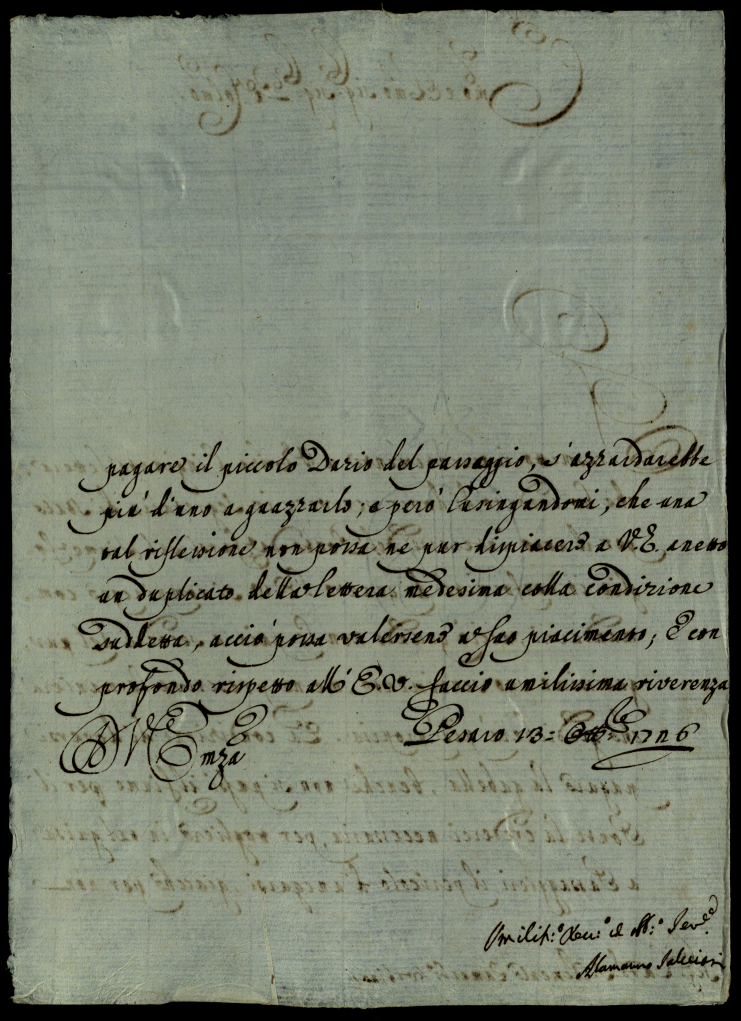 pagare il piccolo Dazio del passaggio, s'azzardarebbe
piu' d'uno a guazzarlo; e pero' lusingandomi, che una
tal riflessione non possa ne pur dispiacere a V.E. anetto
un duplicato della lettera medesima colla condizione
suddetta, accio' possa valersene a suo piacimento; E con
profondo rispetto all' E.V. faccio umilissima riverenza
Pesaro 13 = Ottbre 1726
Emza
Alamanno Salviati